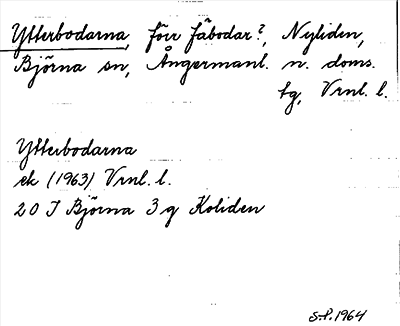 Ytterbodarna, förr fäbodar?, Nyliden,
Björna sn, Ångermanl. n. doms.
tg, Vrnl. l.
Ytterbodarna
ek (1963) Vrnl. l.
20 I Björna 3 g Koliden
S.P. 1964